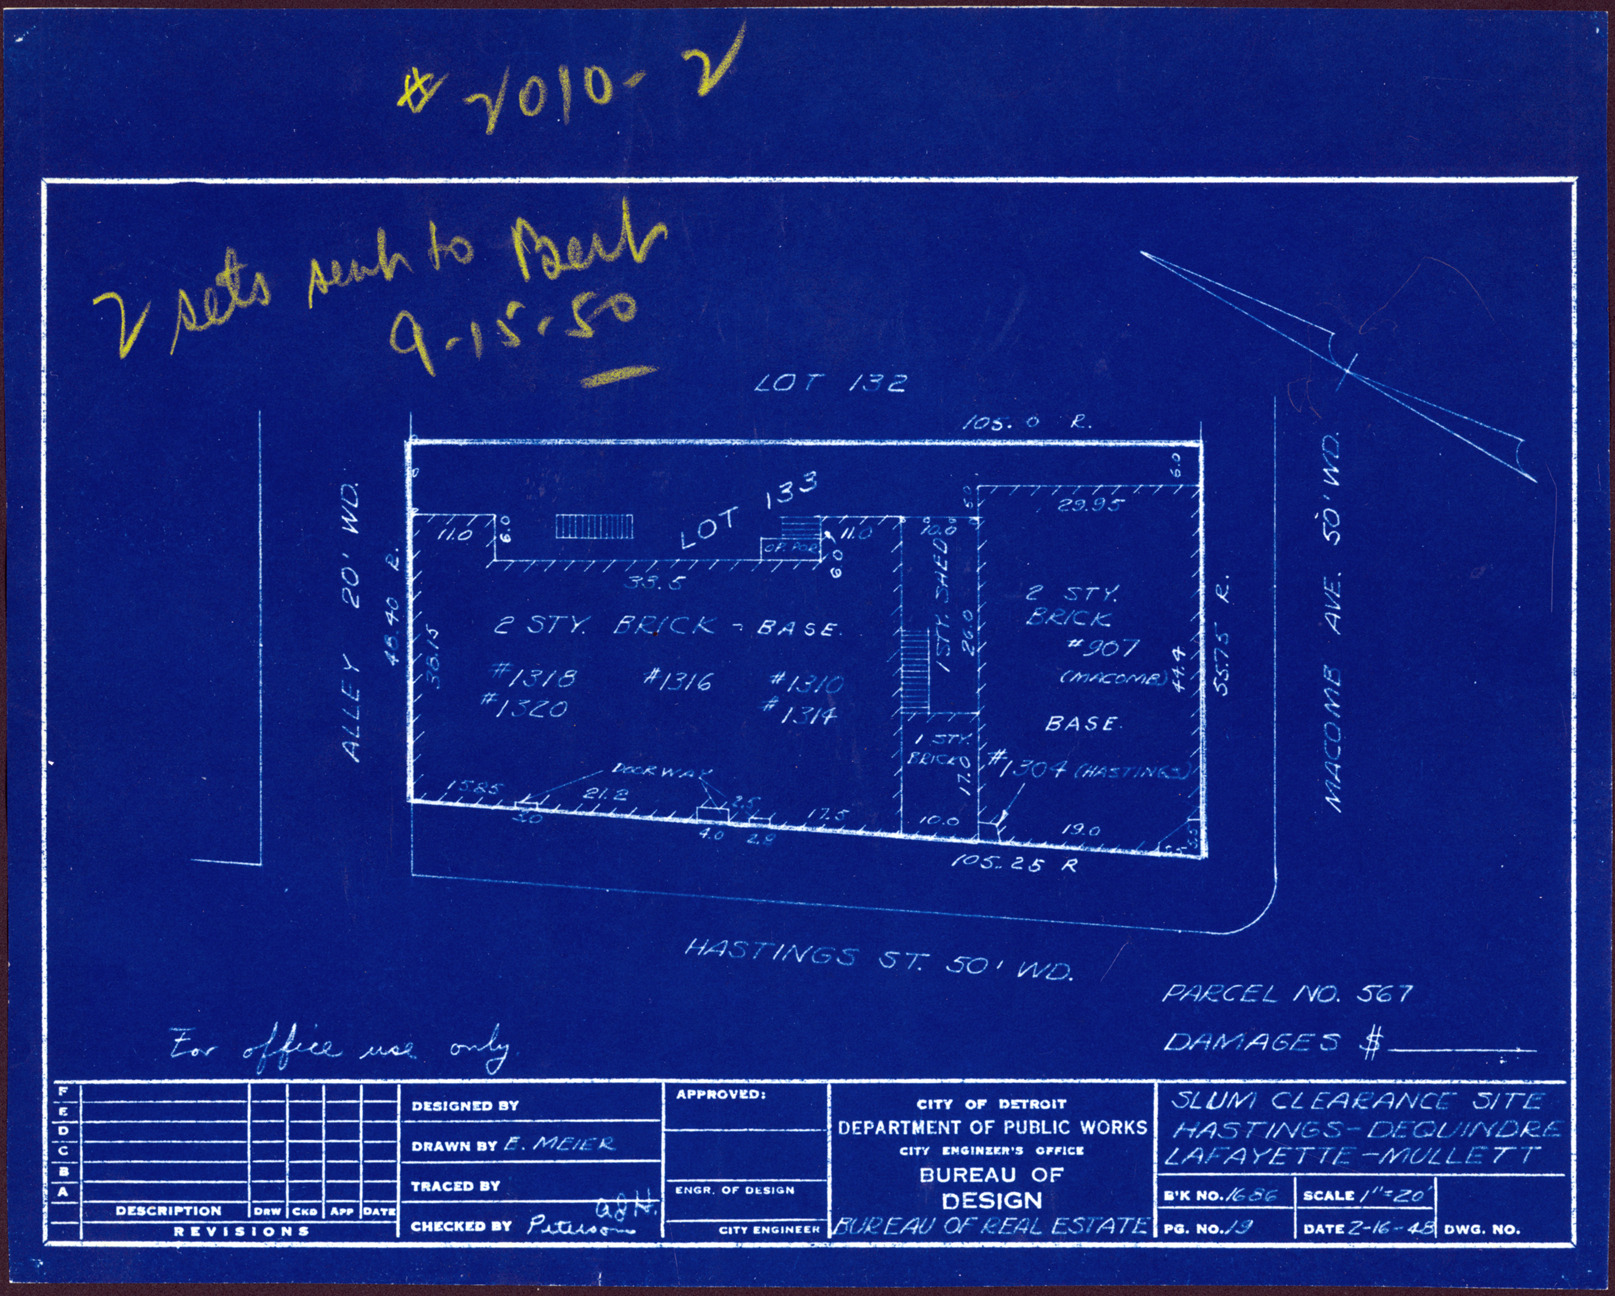 # 2010-2
2 sets sent to Bert
9-15-50
LOT 132
105.0 R.
ALLEY 20' WD.
48.40 R.
38.15
11.0
6.0
LOT 133
33.5
OP. POR.
11.0
6.0
10.0
1 STY. SHED
26.0
6.0
29.95
2 STY. BRICK - BASE.
#1318
#1320
#1316
#1310
#1314
2 STY.
BRICK
#907
(MACOMB)
BASE.
#1304 (HASTINGS)
44.4
55.75 R.
MACOMB AVE. 50' WD.
1 STY.
BRICK
17.0
DOORWAY
15.85
21.2
2.5
17.5
10.0
19.0
4.0
105.25 R
HASTINGS ST. 50' WD.
PARCEL NO. 567
DAMAGES $
For office use only.
F
E
D
C
B
A
DESCRIPTION DRW CKD APP DATE
REVISIONS
DESIGNED BY
DRAWN BY E. MEIER
TRACED BY
CHECKED BY Peterson
APPROVED:
ENGR. OF DESIGN
CITY ENGINEER
CITY OF DETROIT
DEPARTMENT OF PUBLIC WORKS
CITY ENGINEER'S OFFICE
BUREAU OF
DESIGN
BUREAU OF REAL ESTATE
SLUM CLEARANCE SITE
HASTINGS-DEQUINDRE
LAFAYETTE-MULLETT
B'K NO. 1686
SCALE 1"=20'
PG. NO. 19
DATE 2-16-48
DWG. NO.